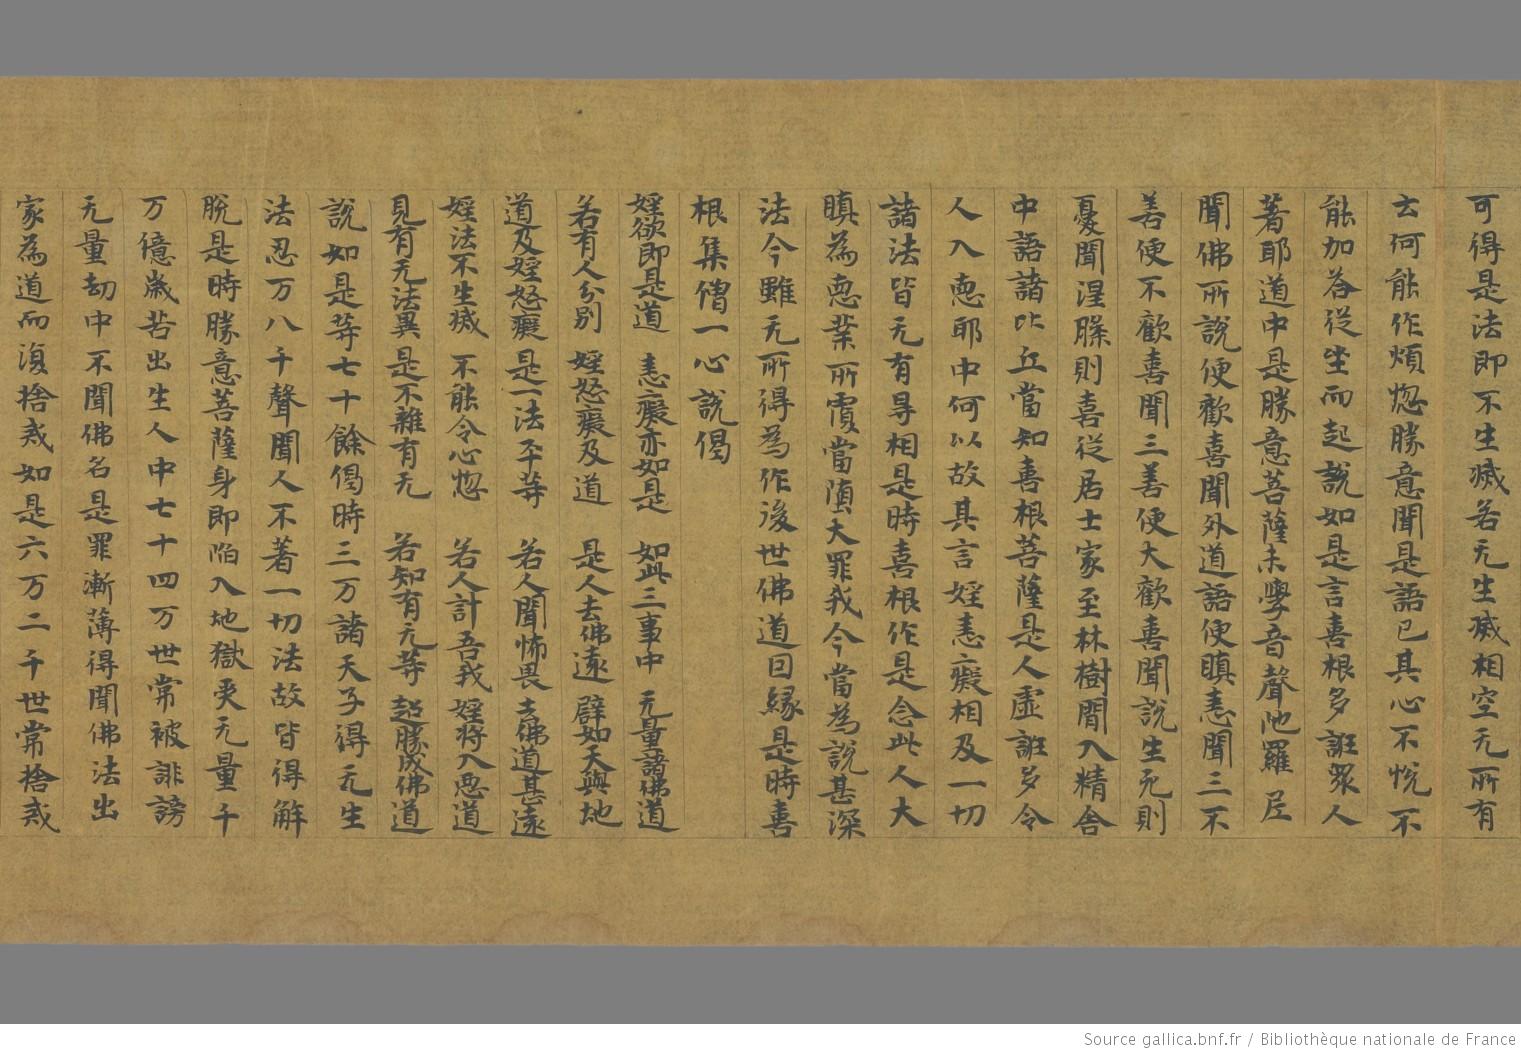 可得是法即不生滅若无生滅相空无所有
云何能作煩惚勝意聞是語已其心不悅不
能加荅從坐而起說如是言喜根多誑衆人
著耶道中是勝意菩薩未學音聲陁羅尼
聞佛所說便歡喜聞外道語便瞋恚聞三不
善便不歡喜聞三善便大歡喜聞說生死則
憂聞涅槃則喜從居士家至林樹間入精舍
中語諸比丘當知喜根菩薩是人虛誑多令
人入惡耶中何以故其言婬恚癡相及一切
諸法皆无有㝵相是時喜根作是念此人大
瞋為惡業所覆當墮大罪我今當為說甚深
法今雖无所得為作後世佛道因緣是時喜
根集僧一心說偈
婬欲即是道　恚癡亦如是　如此三事中　无量諸佛道
若有人分別　婬怒癡及道　是人去佛遠　辟如天與地
道及婬怒癡　是一法平等　若人聞怖畏　去佛道甚遠
婬法不生滅　不能令心惚　若人計吾我　婬將入惡道
見有无法異　是不離有无　若知有无等　超勝成佛道
說如是等七十餘偈時三万諸天子得无生
法忍万八千聲聞人不著一切法故皆得解
脫是時勝意菩薩身即陷入地獄受无量千
万億歲苦出生人中七十四万世常被誹謗
无量劫中不聞佛名是罪漸薄得聞佛法出
家為道而復捨戒如是六万二千世常捨戒
Source gallica.bnf.fr / Bibliothèque nationale de France